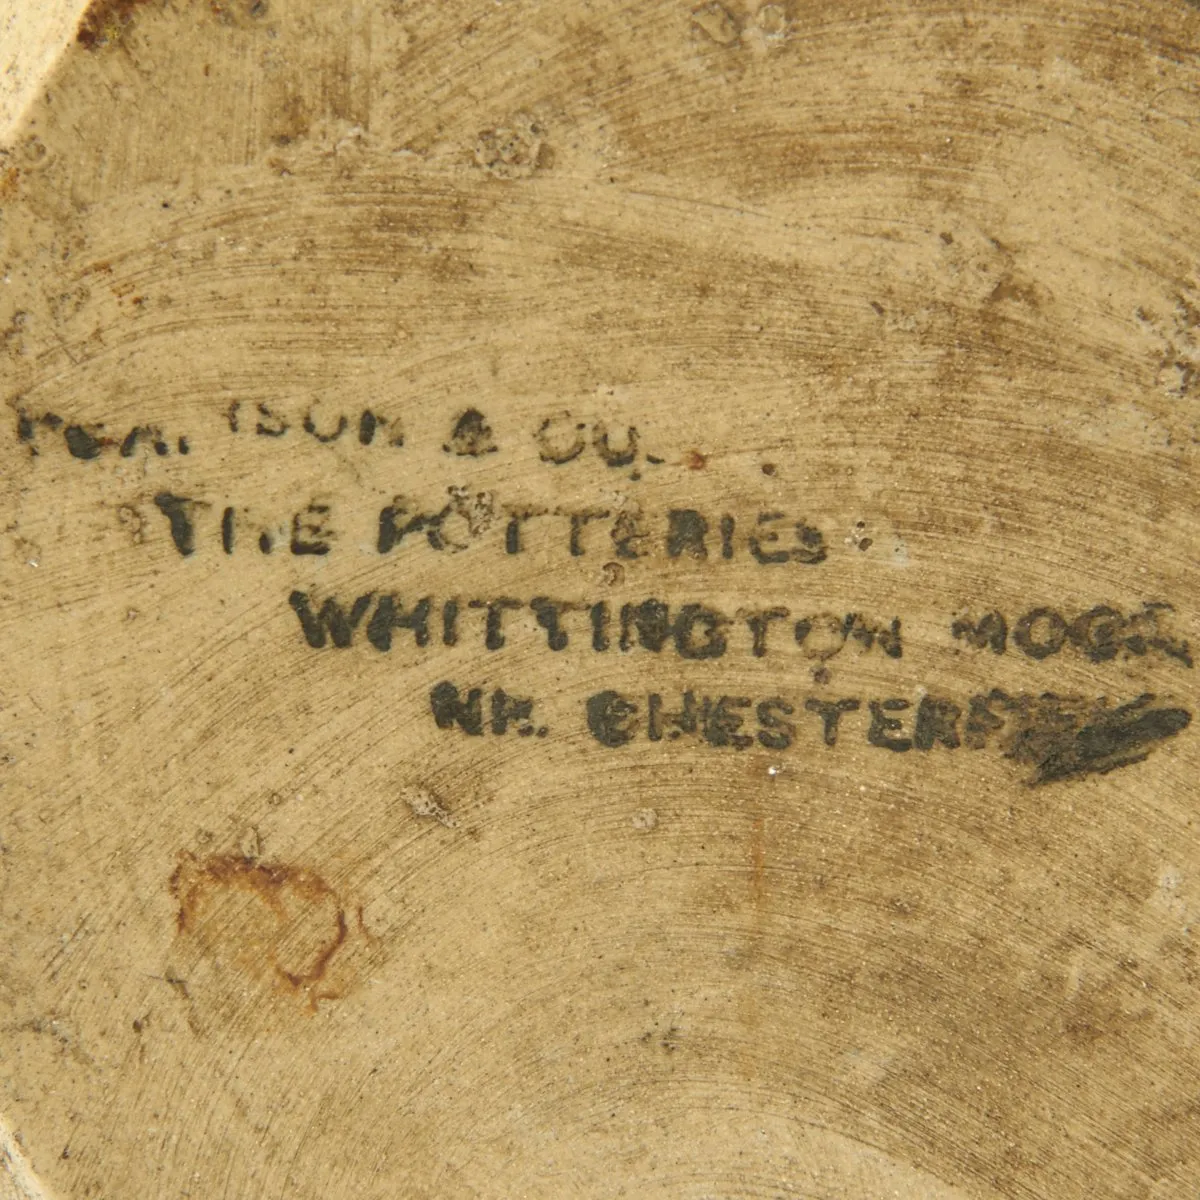 PEARSON & CO.
THE POTTERIES
WHITTINGTON MOOR
NR. CHESTERFIELD